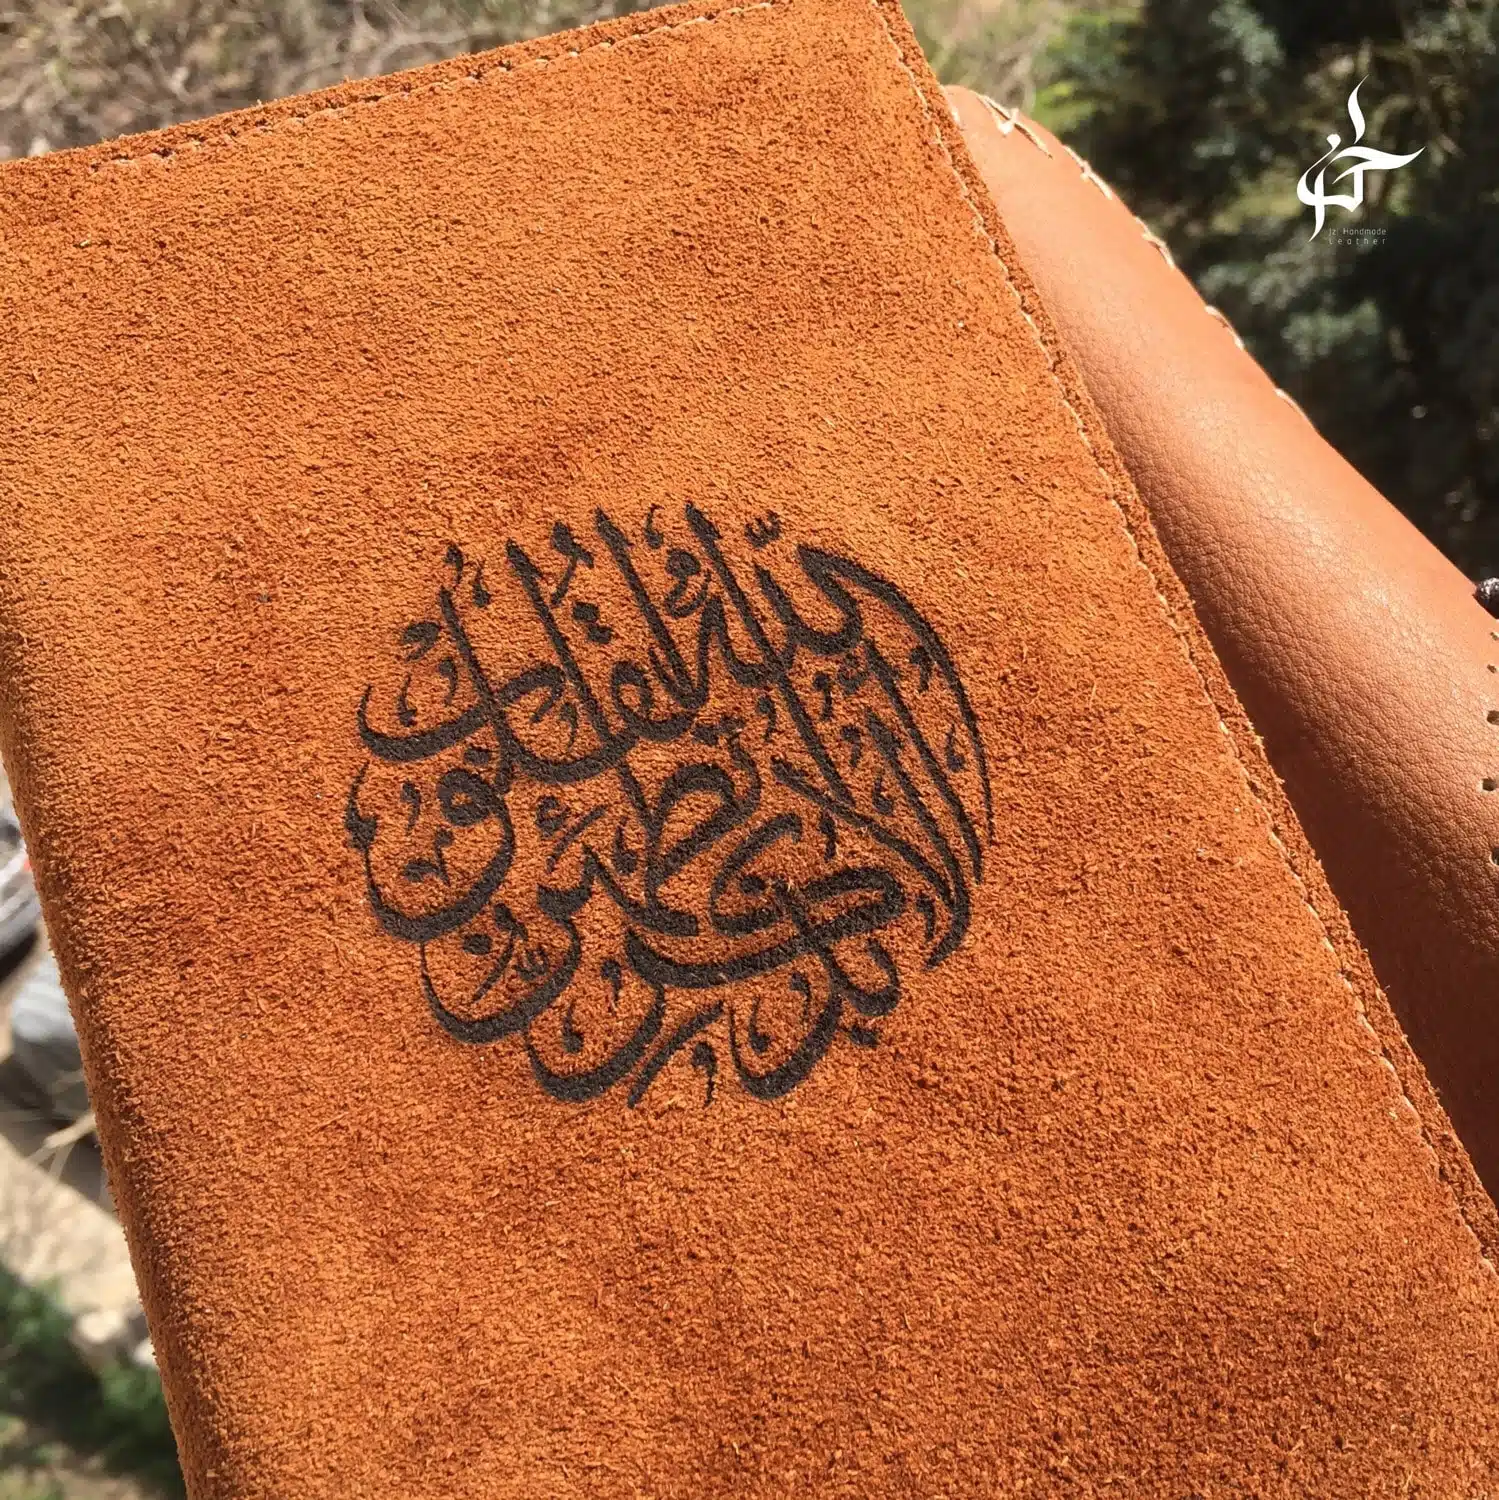 ألا بذكر الله تطمئن القلوب
Jz Handmade
Leather